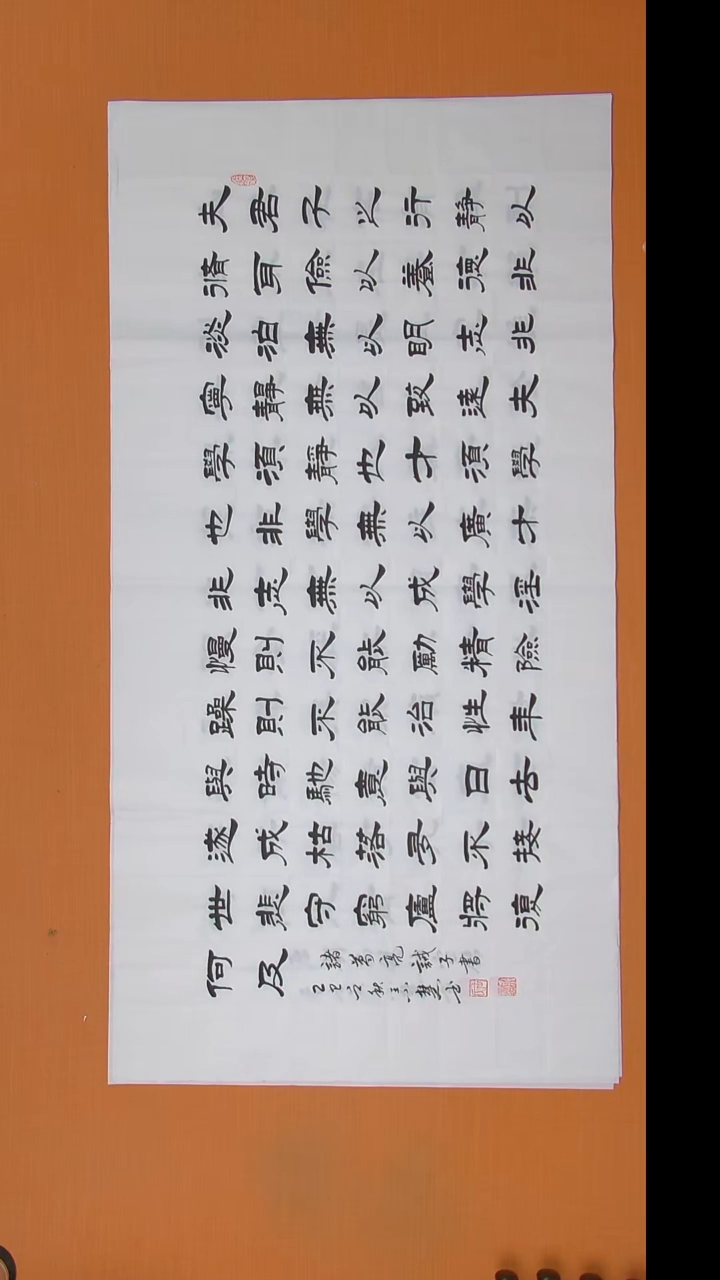 夫君子之行靜以
脩身儉以養德非
淡泊無以明志非
寧靜無以致遠夫
學須靜也才須學
也非學無以廣才
非志無以成學淫
慢則不能勵精險
躁則不能治性年
與時馳意與日去
遂成枯落多不接
世悲守窮廬將復
何及
諸葛亮誡子書
乙巳